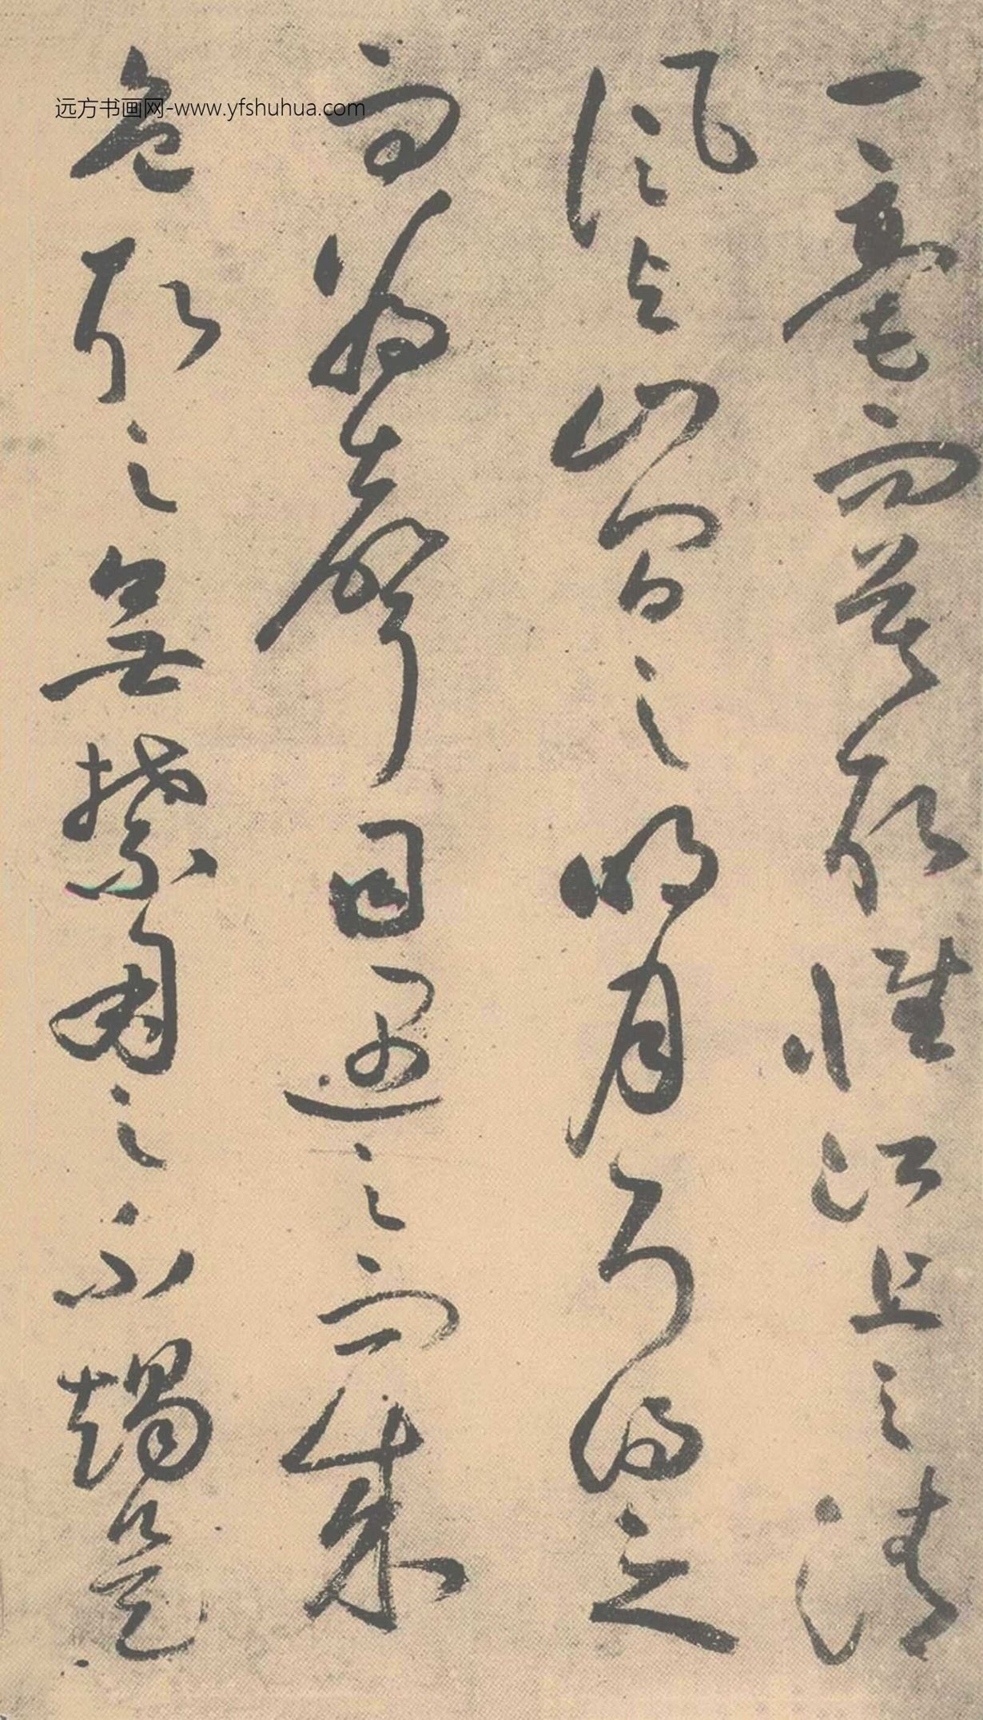 一毫而莫取惟江上之清
風與山間之明月耳得之
而為聲目遇之而成
色取之無禁用之不竭是
远方书画网-www.yfshuhua.com